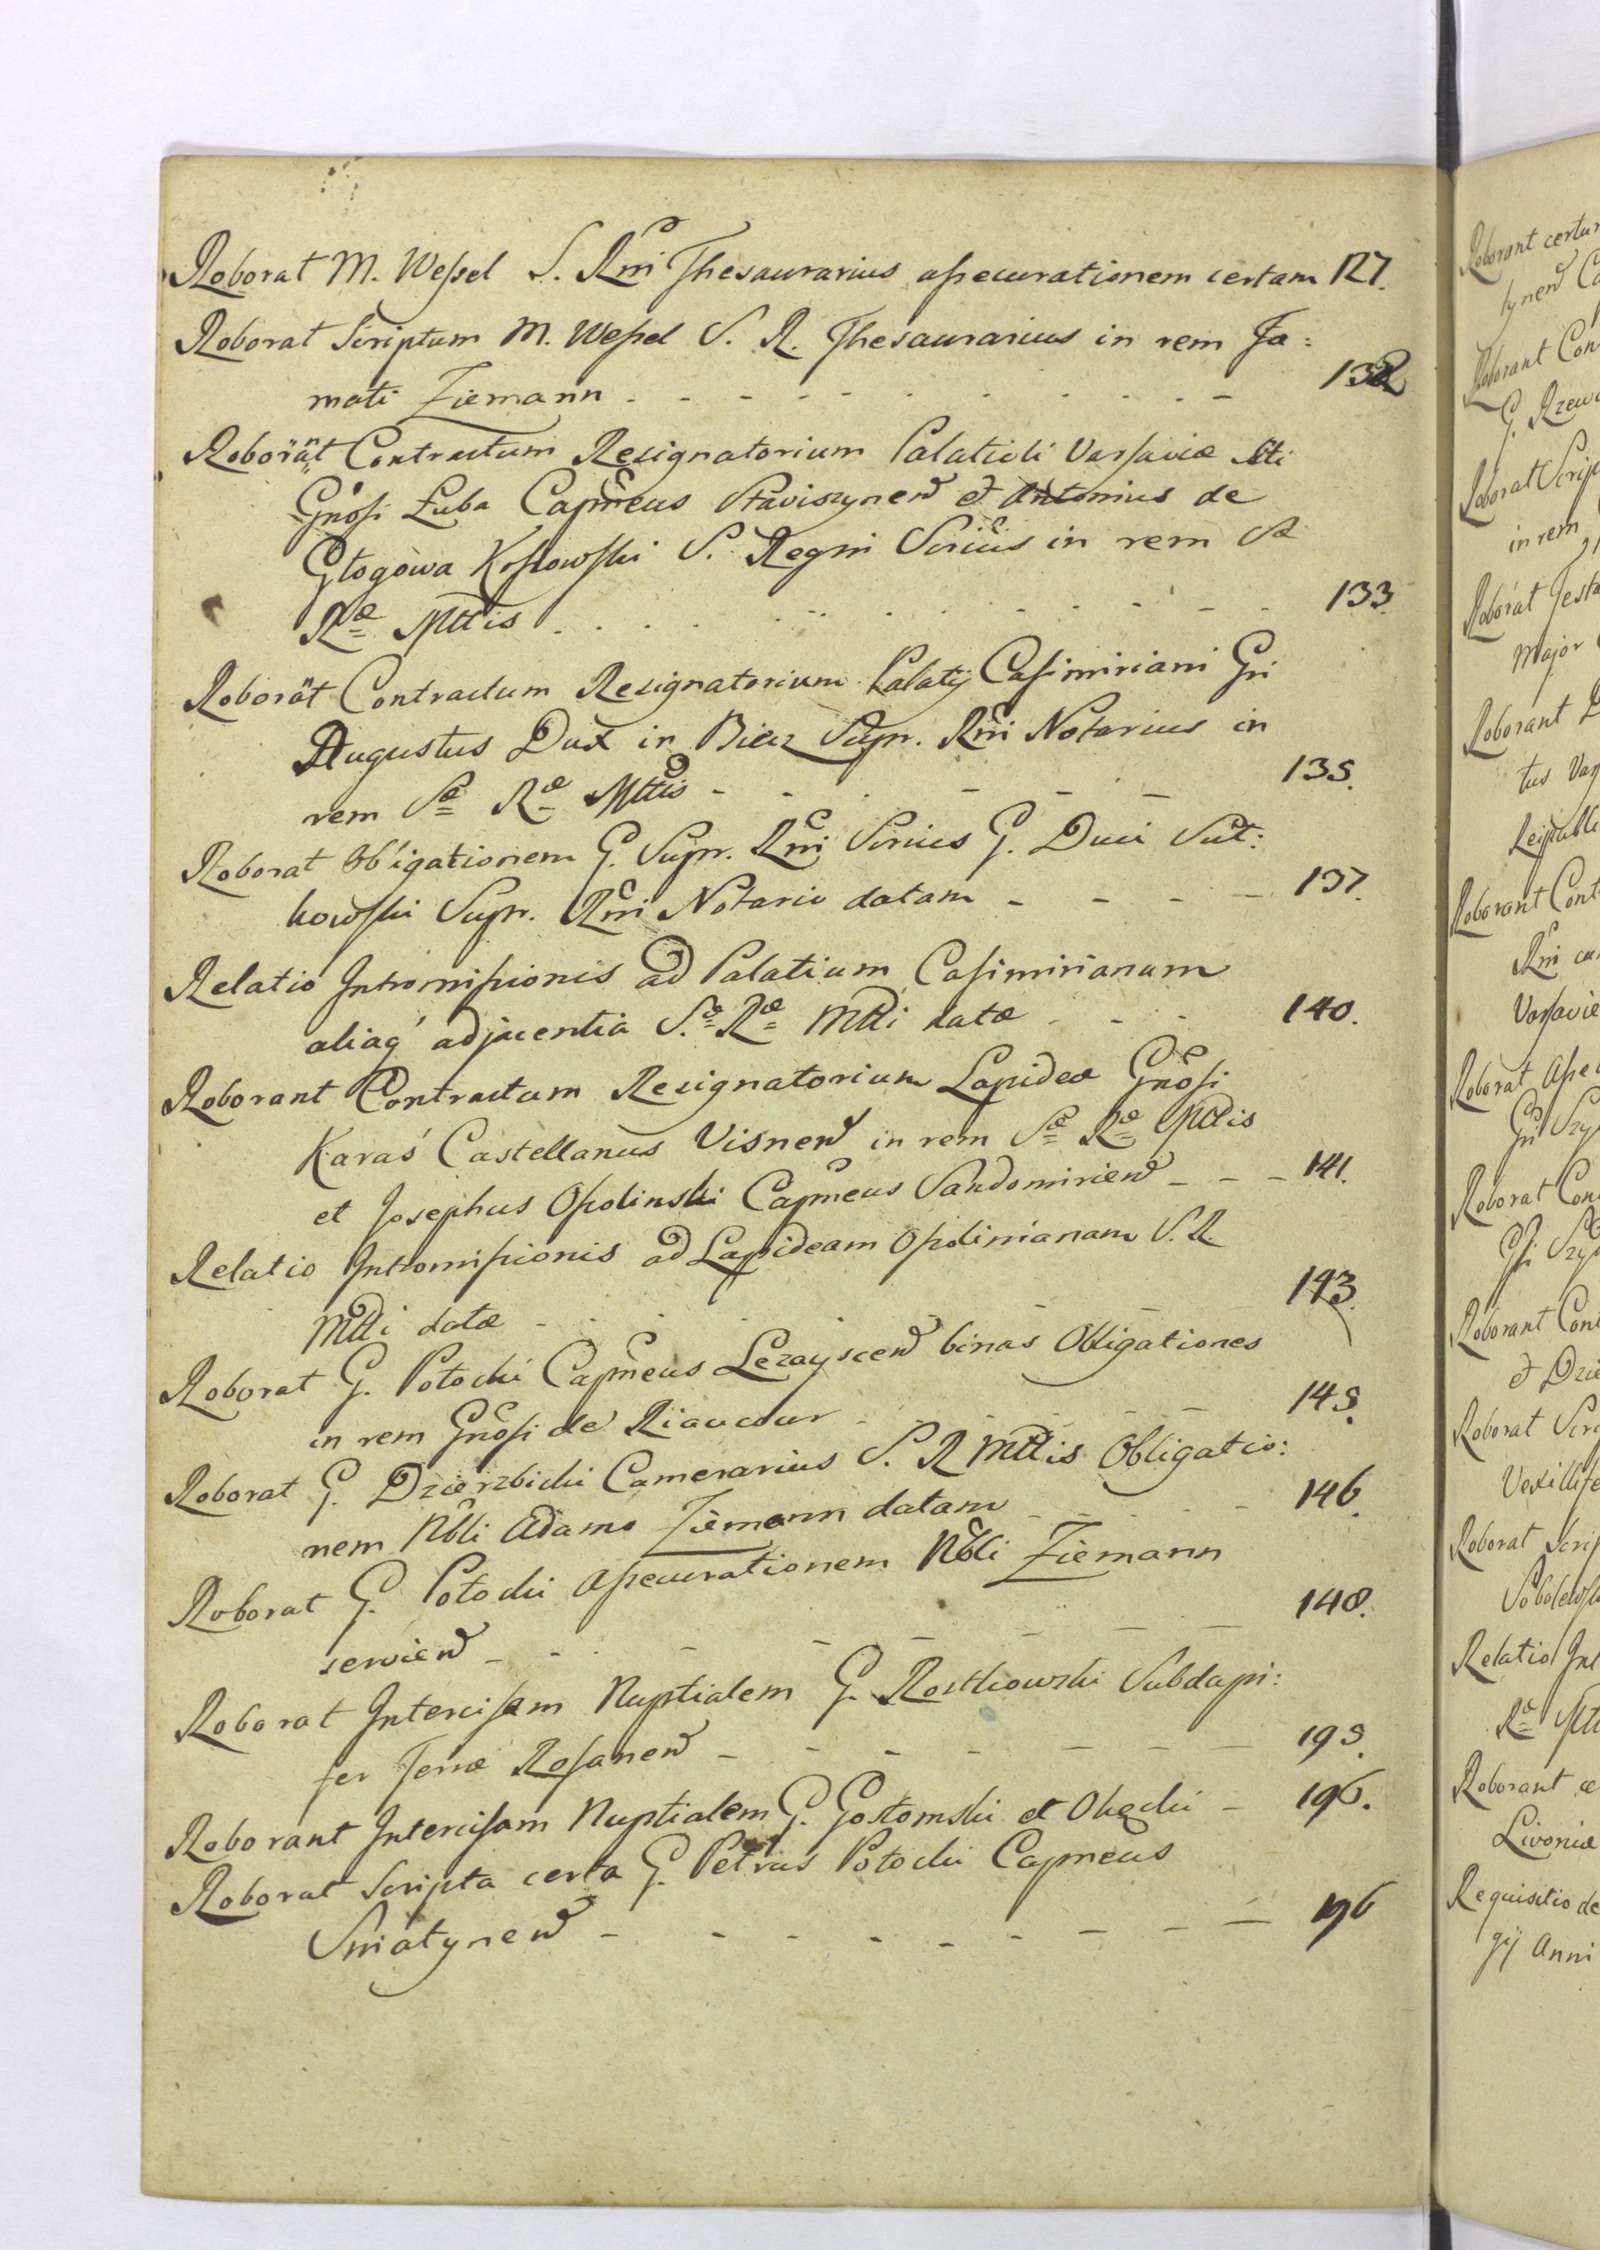 Roborat M. Wessel S. Rni Thesaurarius assecurationem certam 127.
Roborat Scriptum M. Wessel S. R. Thesaurarius in rem Fa:
mati Ziemann 132
Roborat Contractum Resignatorium Palatioli Varsaviæ siti
Gnosi Łuba Capneus Staviszynen et Antonius de
Głogowa Kossowski S. Regni in rem Sæ
Ræ Mttis 133.
Roborat Contractum Resignatorium Palatij Casimiriani Gri
Augustus Dux in Bielz Supr. Rni Notarius in
rem Sæ Ræ Mttis 135.
Roborat Obligationem G. Supr. Rni G. Duci Sut:
kowski Supr. Rni Notario datam 137.
Relatio Intromissionis ad Palatium Casimirianum
aliaq adjacentia S. Ræ Mtti datæ 140.
Roborant Contractum Resignatorium Lapideæ Gnosi
Karaś Castellanus Visnen in rem Sæ Ræ Mttis
et Josephus Opolinski Capneus Sandomirien 141.
Relatio Intromissionis ad Lapideam Opolinianam S. R.
Mtti datæ 143.
Roborat G. Potocki Capneus Lezayscen binas Obligationes
in rem Gnosi de Riaucour 145.
Roborat G. Dzierzbicki Camerarius S. R Mttis Obligatio:
nem Nbli Adamo Ziemann datam 146.
Roborat G. Potocki assecurationem Nbli Ziemann
servien 148.
Roborat Intercisam Nuptialem G. Rostkowski Subdapi:
fer Terræ Rosanen 195.
Roborant Intercisam Nuptialem G. Gostomski et Okęcki 196.
Roborat Scripta certa G. Petrus Potocki Capneus
Sniatynen 196
Roborant
Roborant
G.
Roborat
in rem
Roborat
Major
Roborant
tus
Roborant
Rni
Roborat
Roborat
Roborant
et
Roborat
Roborat
Relatio
Ræ
Roborant
Livoniæ
Requisitio de
gij Anni